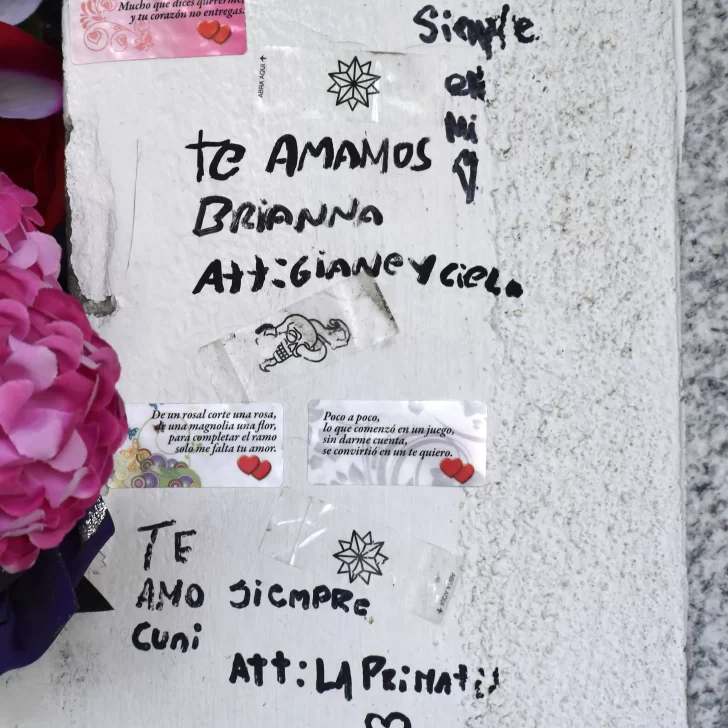 Mucho que dices quererme,
y tu corazón no entregas.
Siempre
en
mi
ABRA AQUI
TE AMAMOS
BRIANNA
Att: GIANE Y CIELO
De un rosal corte una rosa,
de una magnolia una flor,
para completar el ramo
solo me falta tu amor.
Poco a poco,
lo que comenzó en un juego,
sin darme cuenta,
se convirtió en un te quiero.
TE
AMO SIEMPRE
Cuni
Att: LA PRIMATIS